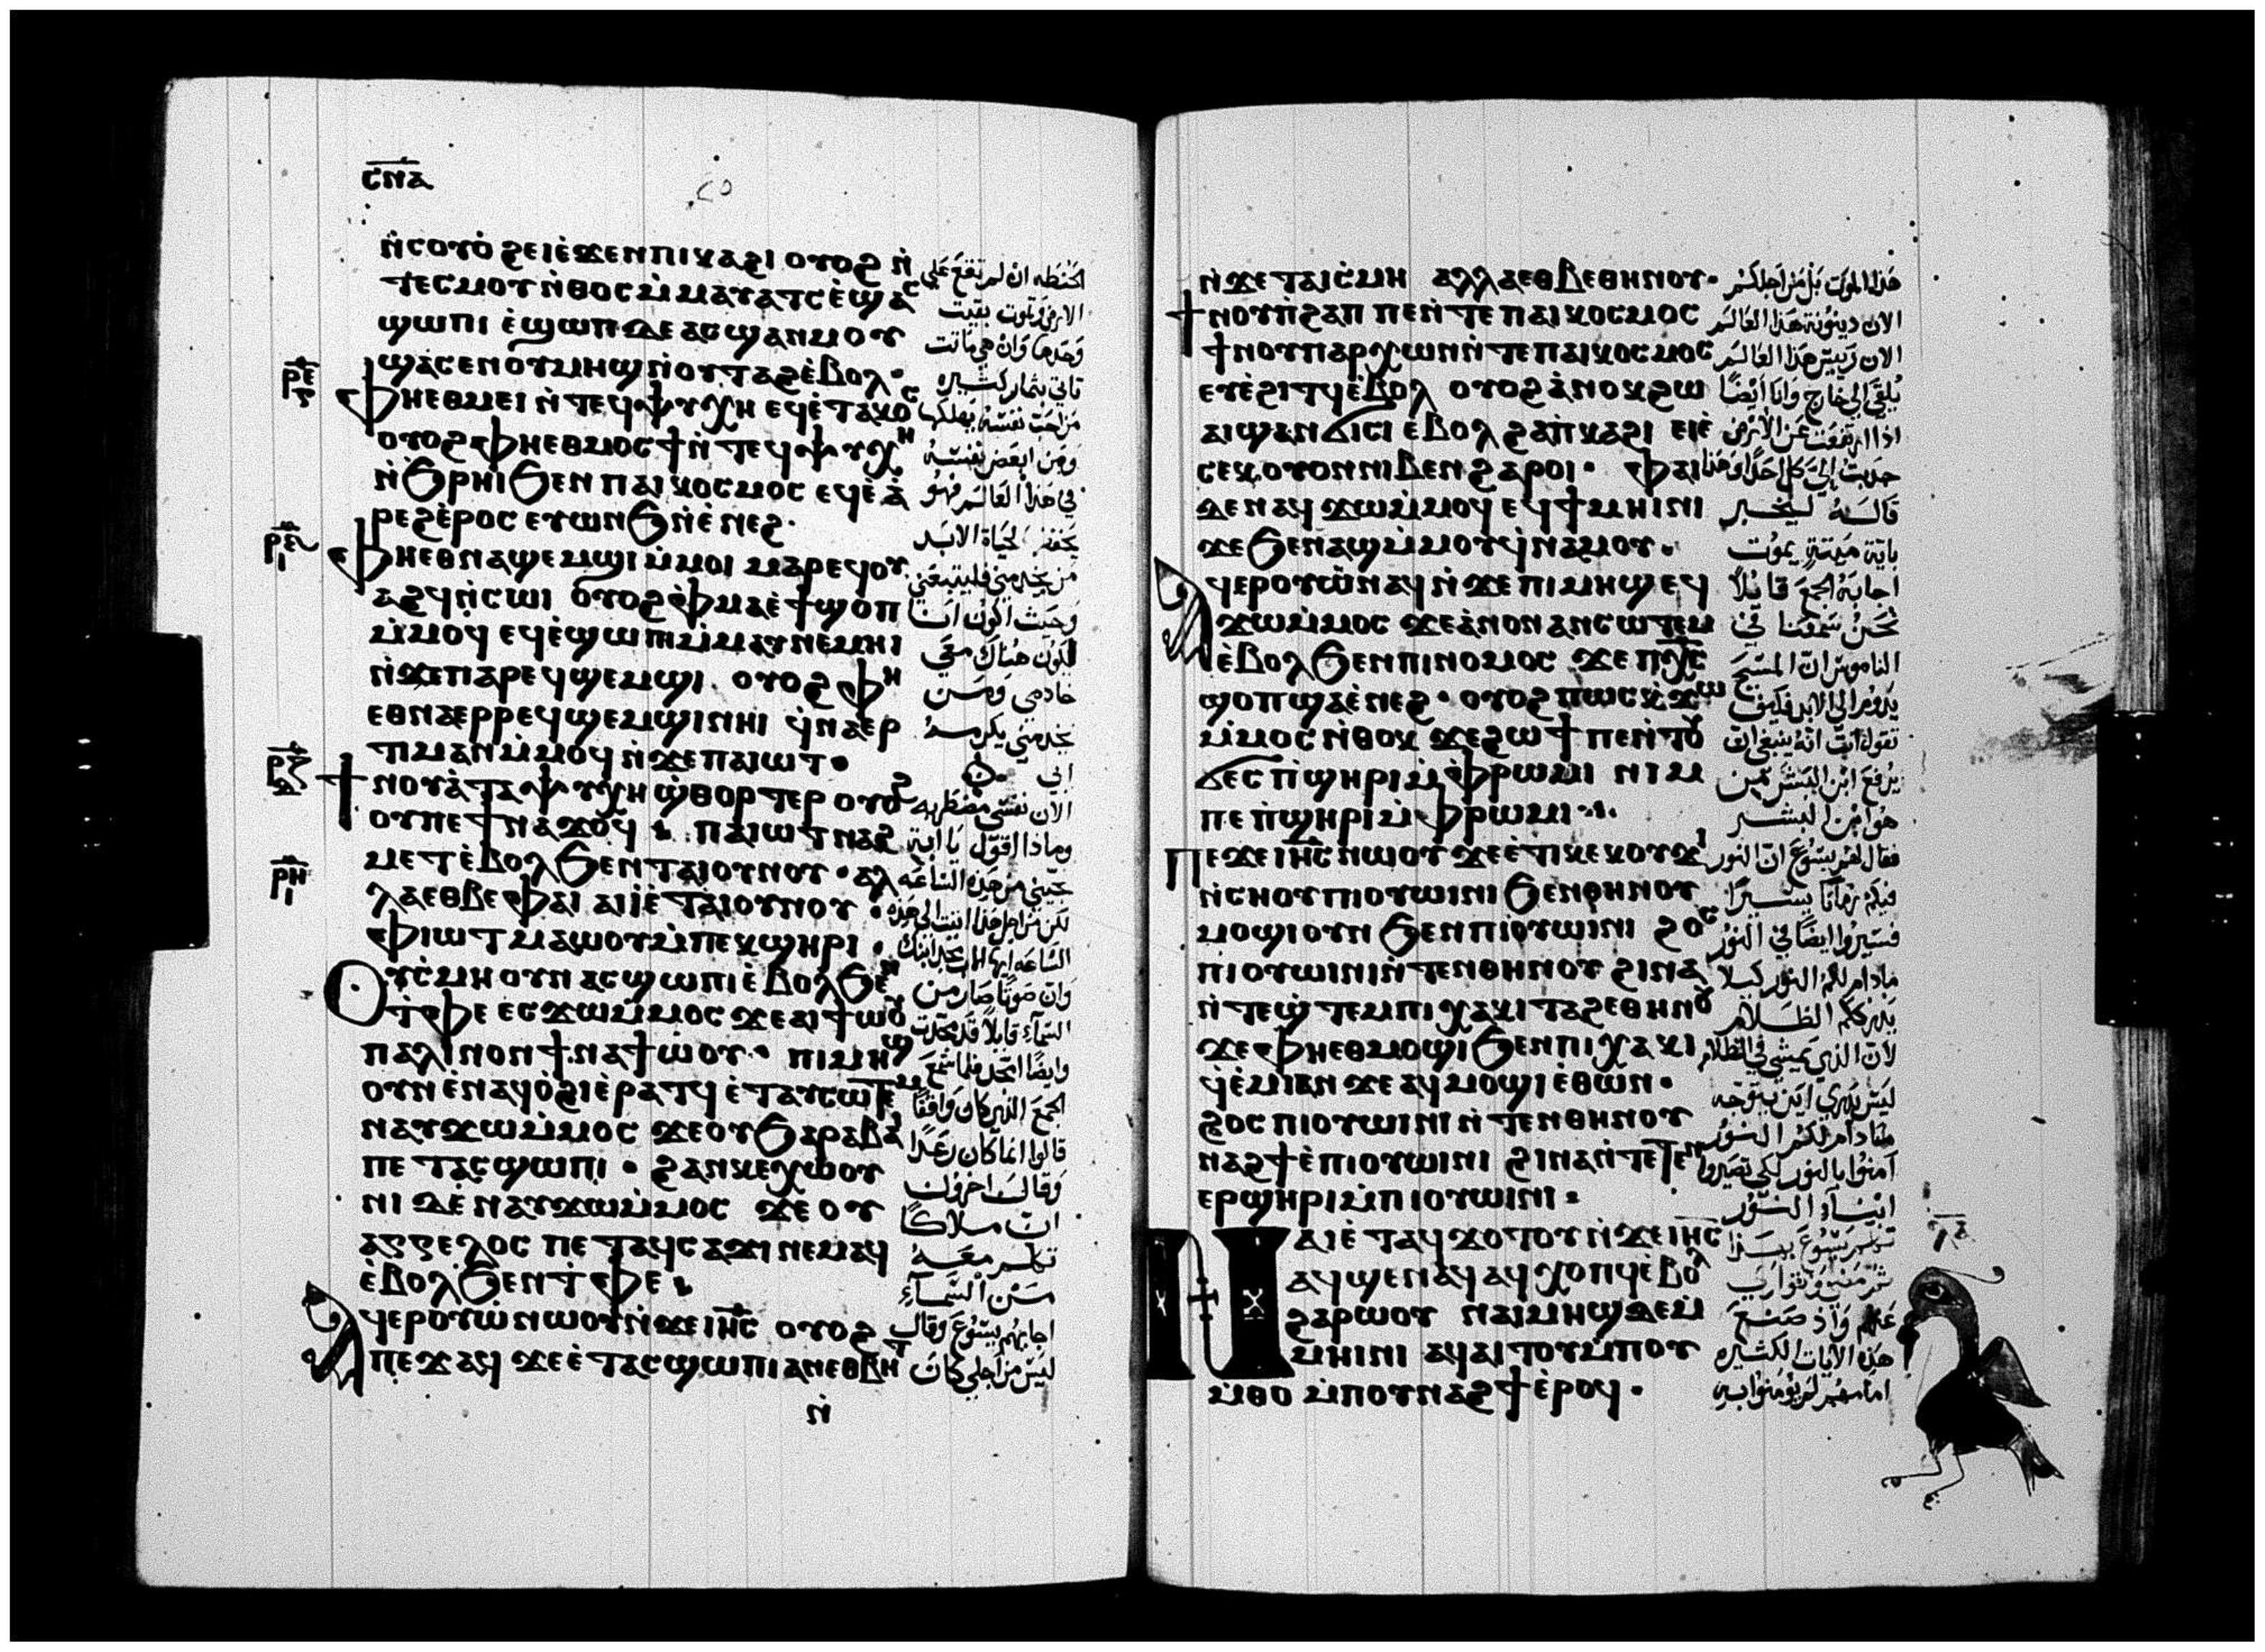 ⲥⲛⲁ
ⲛ̀ⲥⲟⲩⲟ̀ ϩⲉⲓⲉ̀ϫⲉⲛⲡⲓⲕⲁϩⲓ ⲟⲩⲟϩ ⲛ̀
ⲧⲉⲥⲙⲟⲩ ⲛ̀ⲑⲟⲥ ⲙ̀ⲙⲁⲩⲁⲧⲥ ⲉ̀ϣⲁⲥ
ϣⲱⲡⲓ ⲉ̀ϣⲱⲡ ⲇⲉ ⲁⲥϣⲁⲛⲙⲟⲩ
ϣⲁⲥⲉⲛⲟⲩⲙⲏϣ ⲛ̀ⲟⲩⲧⲁϩ ⲉ̀ⲃⲟⲗ·
ⲫⲏⲉⲑⲙⲉⲓ ⲛ̀ⲧⲉϥⲯⲩⲭⲏ ⲉϥⲉ̀ⲧⲁⲕⲟⲥ
ⲟⲩⲟϩ ⲫⲏⲉⲑⲙⲟⲥϯ ⲛ̀ⲧⲉϥⲯⲩⲭⲏ
ⲛ̀ϧⲣⲏⲓ ϧⲉⲛ ⲡⲁⲓⲕⲟⲥⲙⲟⲥ ⲉϥⲉ̀ⲁ̀
ⲣⲉϩ ⲉ̀ⲣⲟⲥ ⲉⲩⲱⲛϧ ⲛ̀ⲉ̀ⲛⲉϩ·
ⲫⲏⲉⲑⲛⲁϣⲉⲙϣⲓ ⲙ̀ⲙⲟⲓ ⲙⲁⲣⲉϥⲟⲩ
ⲁϩϥ ⲛ̀ⲥⲱⲓ ⲟⲩⲟϩ ⲫⲙⲁ ⲉ̀ϯϣⲟⲡ
ⲙ̀ⲙⲟϥ ⲉϥⲉ̀ϣⲱⲡⲓ ⲙ̀ⲙⲁⲩ ⲛⲉⲙⲏⲓ
ⲛ̀ϫⲉⲡⲁⲣⲉϥϣⲉⲙϣⲓ ⲟⲩⲟϩ ⲫⲏ
ⲉⲑⲛⲁⲉⲣⲣⲉϥϣⲉⲙϣⲓ ⲛⲏⲓ ϥ̀ⲛⲁⲉⲣ
ⲧⲓⲙⲁⲛ ⲙ̀ⲙⲟϥ ⲛ̀ϫⲉ ⲡⲁⲓⲱⲧ·
ϯⲛⲟⲩ ⲁ̀ ⲧⲁⲯⲩⲭⲏ ϣ̀ⲑⲟⲣⲧⲉⲣ ⲟⲩⲟϩ
ⲟⲩⲡⲉϯⲛⲁϫⲟϥ ⲡⲁⲓⲱⲧ ⲛⲁϩ
ⲙⲉⲧ ⲉ̀ⲃⲟⲗ ϧⲉⲛ ⲧⲁⲓⲟⲩⲛⲟⲩ· ⲁⲗ
ⲗⲁ ⲉⲑⲃⲉ ⲫⲁⲓ ⲁⲓⲓ̀ ⲉ̀ⲧⲁⲓⲟⲩⲛⲟⲩ·
ⲫⲓⲱⲧ ⲙⲁⲱⲟⲩ ⲙ̀ⲡⲉⲕϣⲏⲣⲓ·
ⲟⲩⲥ̀ⲙⲏ ⲟⲩⲛ ⲁⲥϣⲱⲡⲓ ⲉ̀ⲃⲟⲗ ϧⲉⲛ
ⲧ̀ⲫⲉ ⲉⲥϫⲱⲙ̀ⲙⲟⲥ ϫⲉ ⲁⲓϯⲱⲟⲩ
ⲡⲁⲗⲓⲛ ⲟⲛ ϯⲛⲁϯⲱ̀ⲟⲩ· ⲡⲓⲙⲏϣ
ⲟⲩⲛ ⲉ̀ⲛⲁϥⲟ̀ϩⲓ ⲉ̀ⲣⲁⲧϥ ⲉ̀ⲧⲁⲩⲥⲱⲧⲉⲙ
ⲛⲁⲩϫⲱⲙ̀ⲙⲟⲥ ϫⲉ ⲟⲩϧⲁⲣⲁⲃⲁⲓ
ⲡⲉ ⲧⲁⲥϣⲱⲡⲓ· ϩⲁⲛⲕⲉⲭⲱⲟⲩ
ⲛⲓ ⲇⲉ ⲛⲁⲩϫⲱⲙ̀ⲙⲟⲥ ϫⲉ ⲟⲩ
ⲁⲅⲅⲉⲗⲟⲥ ⲡⲉ ⲧⲁϥⲥⲁϫⲓ ⲛⲉⲙⲁϥ
ⲉ̀ⲃⲟⲗ ϧⲉⲛ ⲧ̀ⲫⲉ
ⲁϥⲉⲣⲟⲩⲱ̀ ⲛⲱⲟⲩ ⲛ̀ϫⲉ ⲓⲏⲥ ⲟⲩⲟϩ
ⲡⲉϫⲁϥ ϫⲉ ⲉ̀ⲧⲁⲥϣⲱⲡⲓ ⲁⲛ ⲉⲑⲃⲏⲧ
ⲛ̀
الحنطه ان لم تقع على
الارض وتموت بقيت
وحدها وان هي ماتت
تاتي بثمار كثيره
من احب نفسه يهلكها
ومن ابغض نفسه
في هذا العالم فهو
يحفظها لحياة الابد
من يخدمني فليتبعني
وحيث اكون انا
يكون هناك معي
خادمي ومن
يخدمني يكرمه
ابي
الان نفسي مضطربه
وماذا اقول يا ابة
نجيني من هذه الساعه
لكن من اجل هذا اتيت الى هذه
الساعه
وان صوتا صار من
السماء قايلا قد مجدت
وايضا امجد فلما سمع
الجمع الذين كان واقفا
قالوا انما كان رعدا
وقال اخرون
ان ملاكا
تكلم معه
من السماء
اجابهم يسوع وقال
ليس من اجلي كان
ⲣⲉ
ⲣⲍ
ⲣⲏ
ⲛ̀ϫⲉ ⲧⲁⲓⲥ̀ⲙⲏ ⲁⲗⲗⲁ ⲉⲑⲃⲉⲑⲏⲛⲟⲩ·
ϯⲛⲟⲩ ⲡ̀ϩⲁⲡ ⲡⲉ ⲛ̀ⲧⲉ ⲡⲁⲓⲕⲟⲥⲙⲟⲥ
ϯⲛⲟⲩ ⲡⲁⲣⲭⲱⲛ ⲛ̀ⲧⲉ ⲡⲁⲓⲕⲟⲥⲙⲟⲥ
ⲉⲩⲉ̀ϩⲓⲧϥ ⲉ̀ⲃⲟⲗ ⲟⲩⲟϩ ⲁ̀ⲛⲟⲕ ϩⲱ
ⲁⲓϣⲁⲛϭⲓⲥⲓ ⲉ̀ⲃⲟⲗ ϩⲁ ⲡ̀ⲕⲁϩⲓ ⲉⲓⲉ̀
ⲥⲉⲕ ⲟⲩⲟⲛ ⲛⲓⲃⲉⲛ ϩⲁⲣⲟⲓ· ⲫⲁⲓ
ⲇⲉ ⲛⲁϥϫⲱⲙ̀ⲙⲟϥ ⲉϥϯⲙⲏⲓⲛⲓ
ϫⲉ ϧⲉⲛ ⲁϣ ⲙ̀ⲙⲟⲩ ϥ̀ⲛⲁⲙⲟⲩ·
ⲁϥⲉⲣⲟⲩⲱ̀ ⲛⲁϥ ⲛ̀ϫⲉ ⲡⲓⲙⲏϣ ⲉϥ
ϫⲱⲙ̀ⲙⲟⲥ ϫⲉ ⲁ̀ⲛⲟⲛ ⲁⲛⲥⲱⲧⲉⲙ
ⲉ̀ⲃⲟⲗ ϧⲉⲛ ⲡⲓⲛⲟⲙⲟⲥ ϫⲉ ⲡⲭⲥ
ϣⲟⲡ ϣⲁ ⲉ̀ⲛⲉϩ· ⲟⲩⲟϩ ⲡⲱⲥ ⲕ̀ϫⲱ
ⲙ̀ⲙⲟⲥ ⲛ̀ⲑⲟⲕ ϫⲉ ϩⲱϯ ⲡⲉ ⲛ̀ⲧⲟⲩ
ϭⲉⲥ ⲡ̀ϣⲏⲣⲓ ⲙ̀ⲫⲣⲱⲙⲓ ⲛⲓⲙ
ⲡⲉ ⲡ̀ϣⲏⲣⲓ ⲙ̀ⲫⲣⲱⲙⲓ
ⲡⲉϫⲉ ⲓⲏⲥ ⲛⲱⲟⲩ ϫⲉ ⲉ̀ⲧⲓ ⲕⲉⲕⲟⲩϫⲓ
ⲛ̀ⲥⲏⲟⲩ ⲡⲓⲟⲩⲱⲓⲛⲓ ϧⲉⲛ ⲑⲏⲛⲟⲩ
ⲙⲟϣⲓ ⲟⲩⲛ ϧⲉⲛ ⲡⲓⲟⲩⲱⲓⲛⲓ ϩⲟⲥ
ⲡⲓⲟⲩⲱⲓⲛⲓ ⲛ̀ⲧⲉⲛⲑⲏⲛⲟⲩ ϩⲓⲛⲁ
ⲛ̀ⲧⲉϣ̀ⲧⲉⲙ ⲡⲓⲭⲁⲕⲓ ⲧⲁϩⲉ ⲑⲏⲛⲟⲩ
ϫⲉ ⲫⲏⲉⲑⲙⲟϣⲓ ϧⲉⲛ ⲡⲓⲭⲁⲕⲓ
ϥ̀ⲉ̀ⲙⲓ ⲁⲛ ϫⲉ ⲁϥⲙⲟϣⲓ ⲉ̀ⲑⲱⲛ·
ϩⲟⲥ ⲡⲓⲟⲩⲱⲓⲛⲓ ⲛ̀ⲧⲉⲛⲑⲏⲛⲟⲩ
ⲛⲁϩϯ ⲉ̀ⲡⲓⲟⲩⲱⲓⲛⲓ ϩⲓⲛⲁ ⲛ̀ⲧⲉⲧⲉⲛ
ⲉⲣϣⲏⲣⲓ ⲙ̀ⲡⲓⲟⲩⲱⲓⲛⲓ
ⲛⲁⲓ ⲉ̀ⲧⲁϥϫⲟⲧⲟⲩ ⲛ̀ϫⲉ ⲓⲏⲥ
ⲁϥϣⲉⲛⲁϥ ⲁϥⲭⲟⲡϥ ⲉ̀ⲃⲟⲗ
ϩⲁⲣⲱⲟⲩ ⲛⲁⲓⲙⲏϣ ⲇⲉ ⲙ̀
ⲙⲏⲓⲛⲓ ⲁϥⲁⲓⲧⲟⲩ ⲙ̀ⲡⲟⲩ
ⲙ̀ⲑⲟ ⲙ̀ⲡⲟⲩⲛⲁϩϯ ⲉ̀ⲣⲟϥ·
هذا الموت بل من اجلكم
الان دينونة هذا العالم
الان رييس هذا العالم
يلقى الى خارج وانا ايضا
اذا ارتفعت عن الارض
جذبت الي كل احد وهذا
قاله ليخبر
باية ميتة يموت
اجابه الجمع قايلا
نحن سمعنا في
الناموس ان المسيح
يدوم الى الابد فكيف
تقول انت انه ينبغي ان
يرفع ابن البشر من
هو ابن البشر
فقال لهم يسوع ان النور
فيكم زمانا يسيرا
فسيروا ايضا في النور
ما دام لكم النور كيلا
يدرككم الظلام
لان الذي يمشي في الظلام
ليس يدري اين يتوجه
ما دام لكم النور
امنوا بالنور لكي تصيروا
ابناء النور
تكلم يسوع بهذا
ثم مضى وتوارى
عنهم واذ صنع
هذه الايات الكثيره
امامهم لم يؤمنوا به